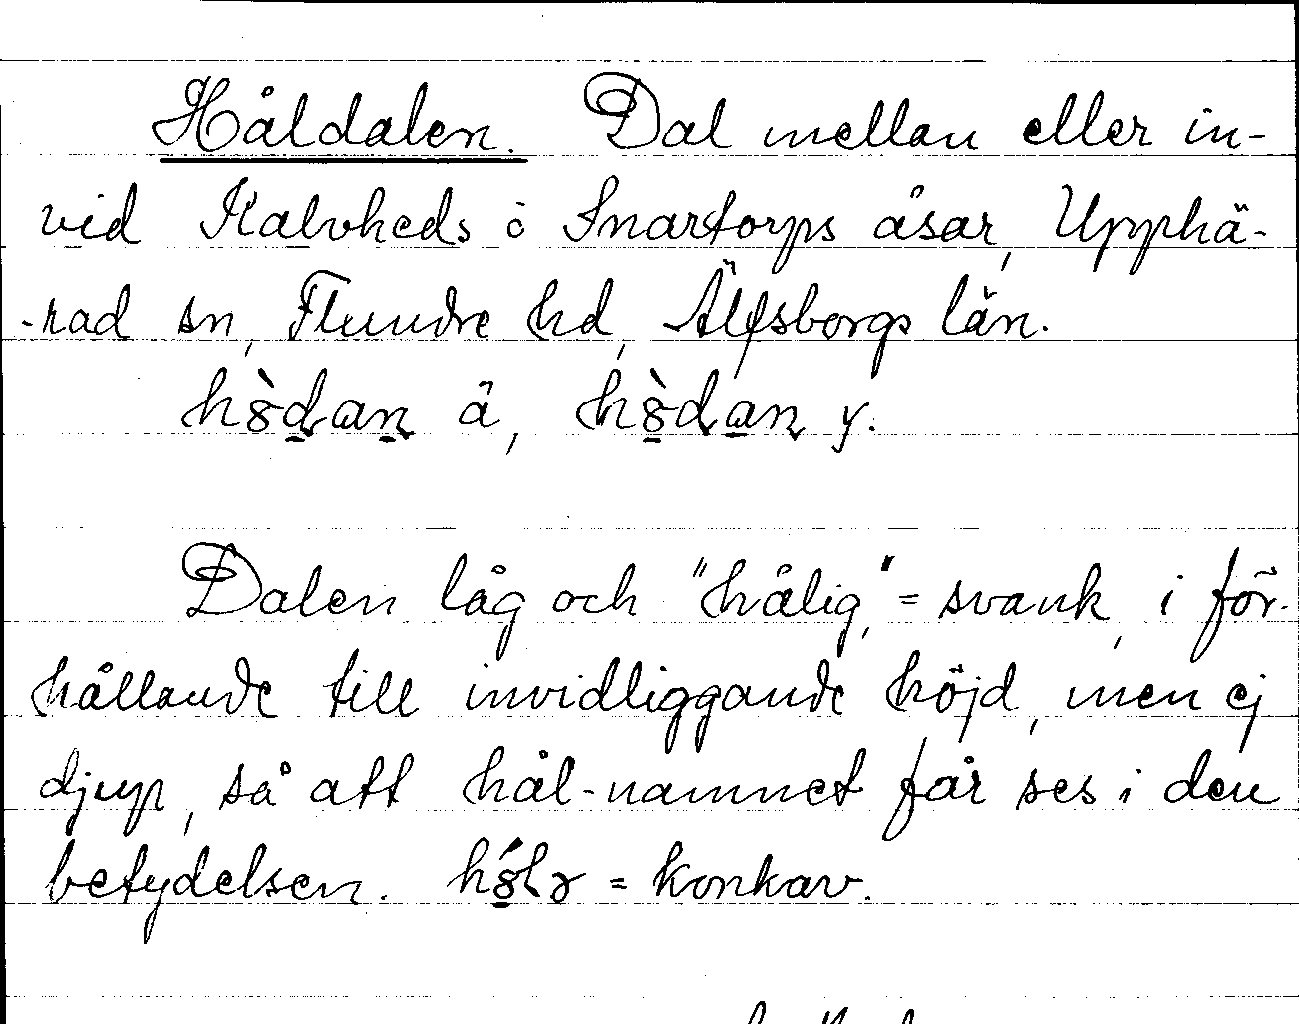 Håldalen. Dal mellan eller in-
vid Kalvheds o Snartorps åsar, Upphä-
-rad sn, Flundre hd, Älfsborgs län.
hòdan ä, hòdan y.
Dalen låg och "hålig," = svank, i för-
hållande till invidliggande höjd, men ej
djup, så att hål-namnet får ses i den
betydelsen. = konkav.